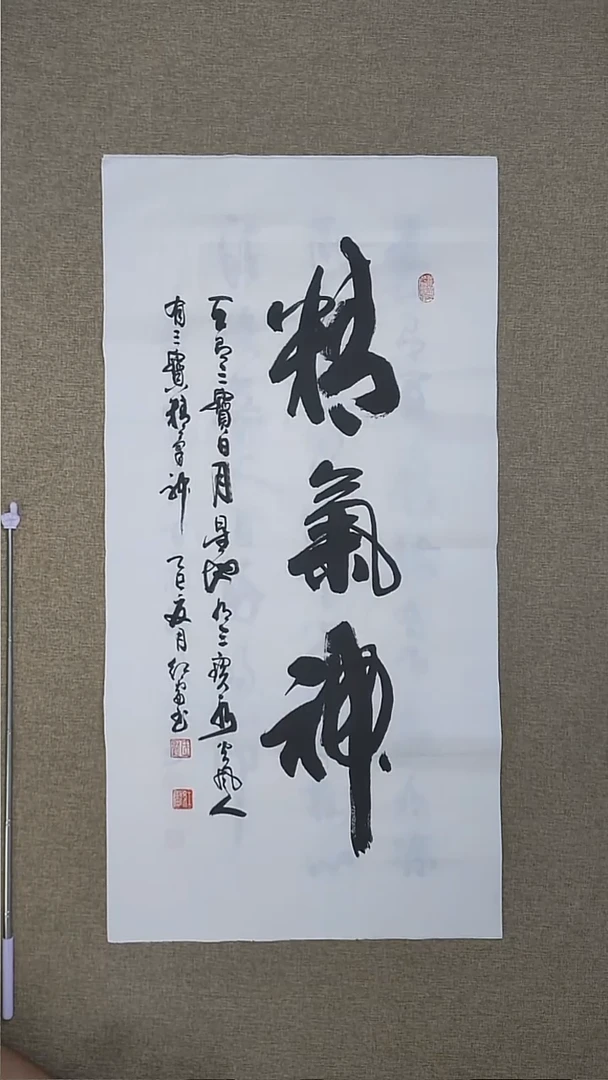 精氣神
天有三寶日月星地有三寶水火風人
有三寶精氣神 乙巳夏月